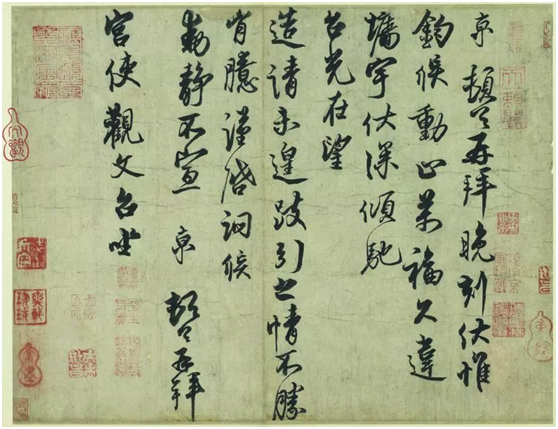 京 頓首再拜晚刻伏惟
鈞候動止萬福久違
墻宇伏深傾馳
台光在望
造請未遑跂引之情不勝
胷臆謹啓詞候
動静不宣 京 頓首再拜
宮使觀文台坐